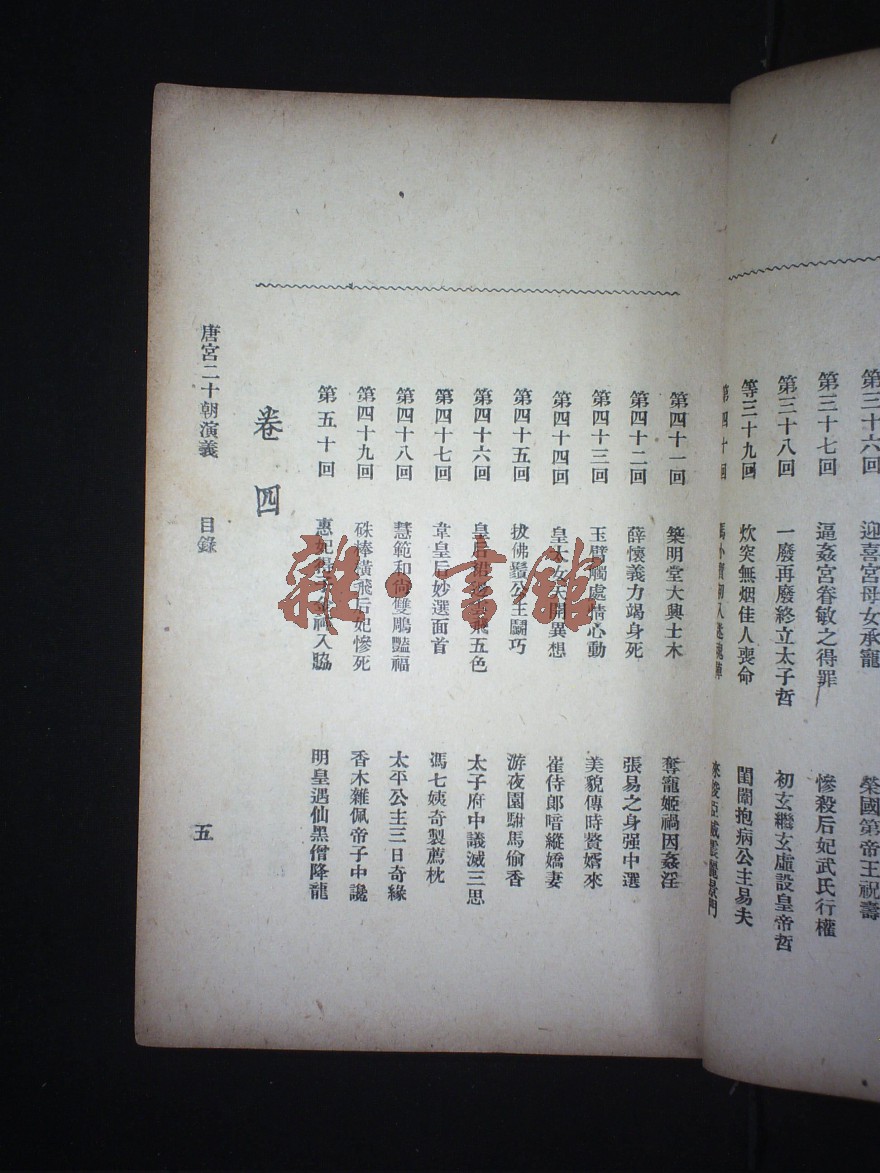 第三十六回　迎喜宮母女承寵　榮國第帝王祝壽
第三十七回　逼姦宮眷敏之得罪　慘殺后妃武氏行權
第三十八回　一廢再廢終立太子哲　初玄繼玄虛設皇帝哲
等三十九回　炊突無烟佳人喪命　閨闈抱病公主易夫
第四十回
第四十一回　築明堂大興土木　奪寵姬禍因姦淫
第四十二回　薛懷義力竭身死　張易之身强中選
第四十三回　玉臂觸處情心動　美貌傳時贅婿來
第四十四回　皇太女天開異想　崔侍郎暗縱嬌妻
第四十五回　拔佛鬚公主鬭巧　游夜園駙馬偷香
第四十六回　皇后裙飛五色　太子府中議滅三思
第四十七回　韋皇后妙選面首　馮七姨奇製薦枕
第四十八回　慧範和尚雙鵰豔福　太平公主三日奇緣
第四十九回　硃棒橫飛后妃慘死　香木雜佩帝子中讒
第五十回　惠妃入脇　明皇遇仙黑僧降龍
卷四
唐宮二十朝演義　目錄　五
雜·書館